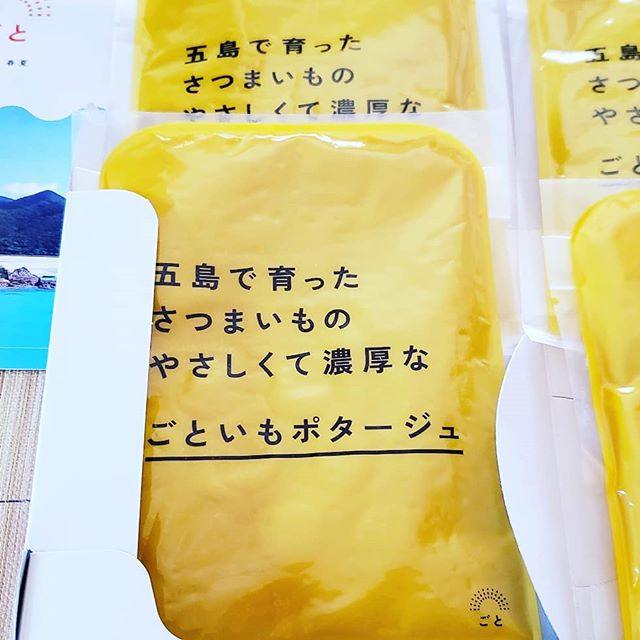 ごと
春夏
五島で育った
さつまいもの
やさしくて濃厚な
五島
さつま
やさ
ごと
五島で育った
さつまいもの
やさしくて濃厚な
ごといもポタージュ
ごと